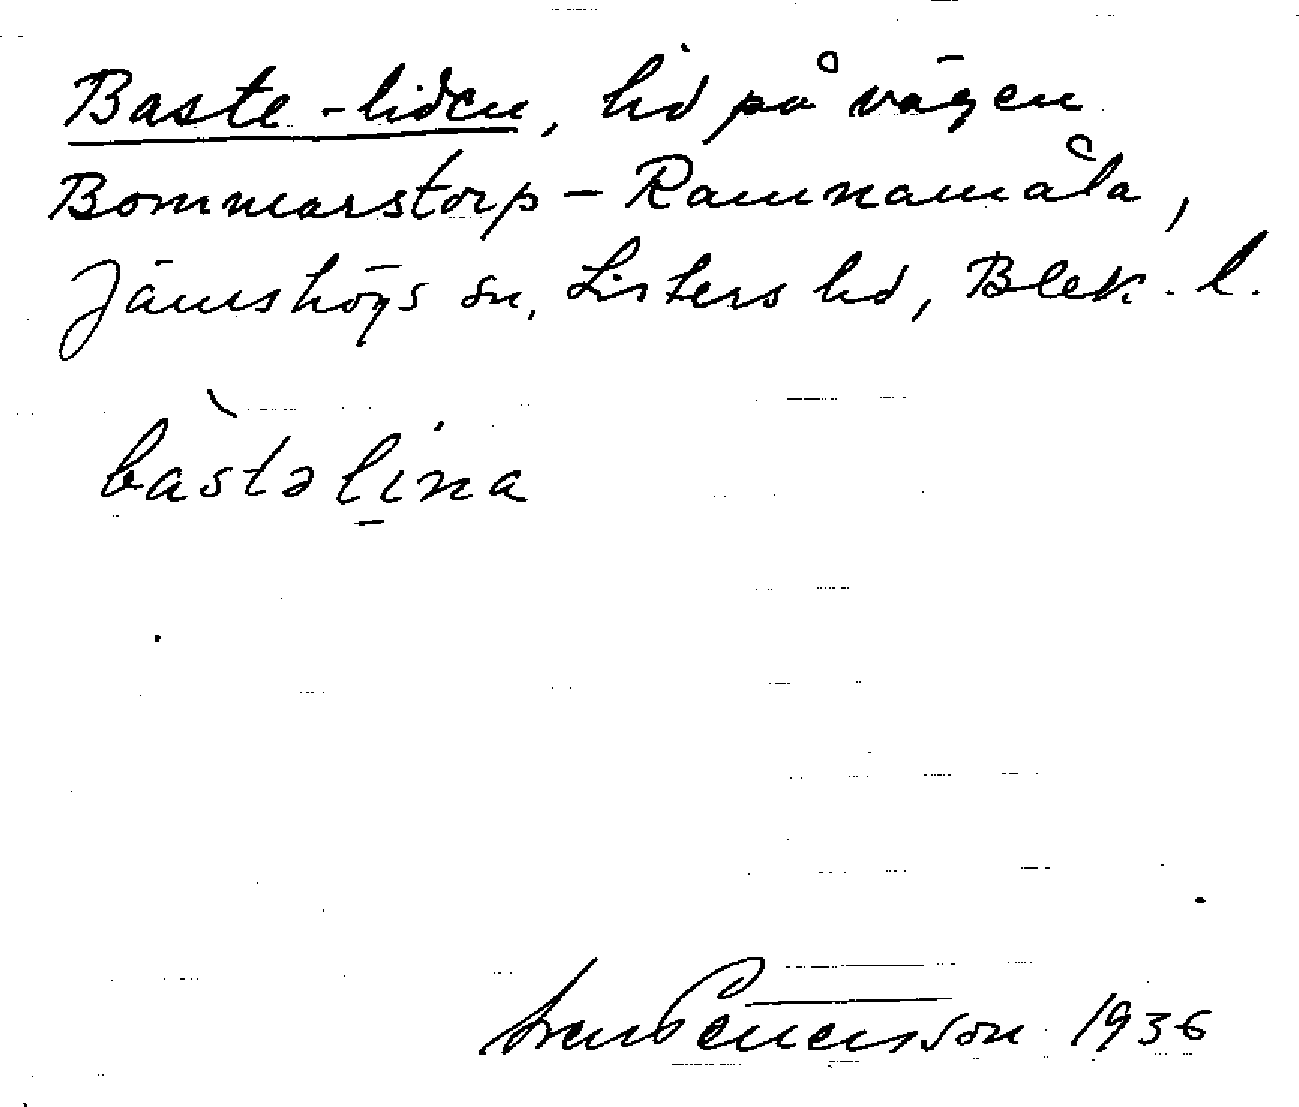 Baste-liden, lid på vägen
Bommarstorp - Ramnamåla,
Jämshögs sn, Listers hd, Blek. l.
bàstəlịna
Sven Benensson 1936